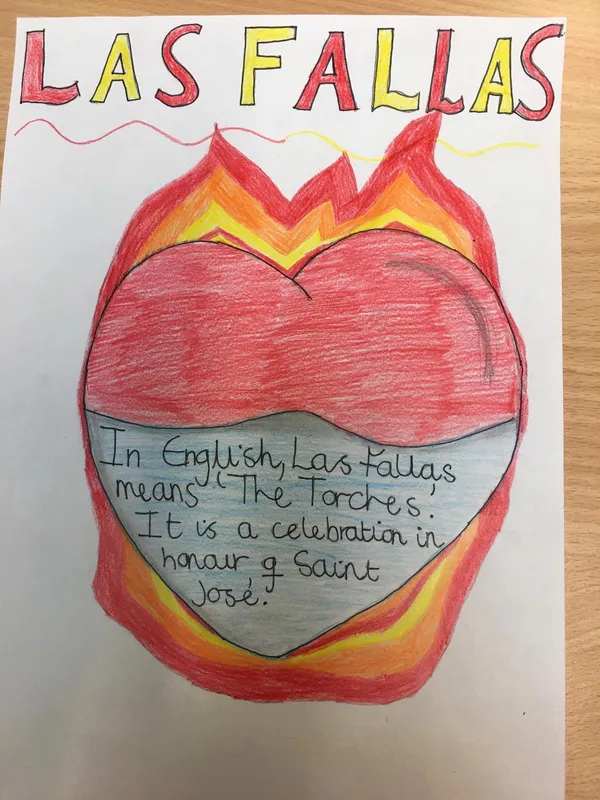 LAS FALLAS
In English, Las Fallas
means 'The Torches'.
It is a celebration in
honour of Saint
José.